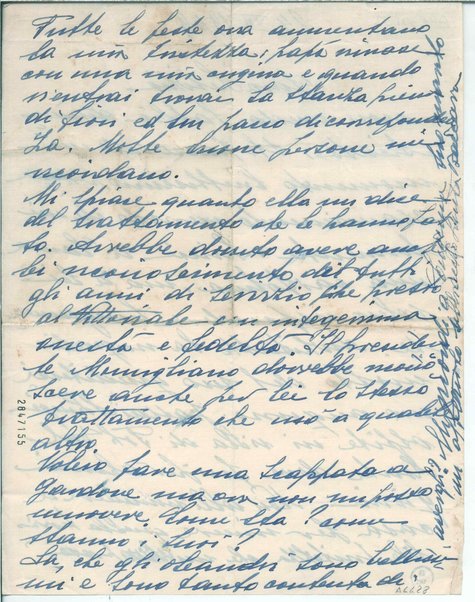 Tutte le feste ora aumentano
la mia tristezza; papà rimase
con una mia cugina e quando
rientrai trovai la stanza piena
di fiori ed un pacco di corrisponden
za. Molte buone persone mi
ricordano.
Mi spiace quanto ella mi dice
del trattamento che le hanno fat
to. Avrebbe dovuto avere anche
lei riconoscimento di tutti
gli anni di servizio che prestò
al Tribunale con integerrima
onestà e fedeltà. Il presiden
te Momigliano dovrebbe
anche per lei lo stesso
trattamento che usò a quell'
altro.
Volevo fare una scappata a
Gardone ma ora non mi posso
muovere. Come sta? come
stanno i Suoi?
Sa, che gli oleandri sono bellissi
mi e sono tanto contenta di
2847155
A6628